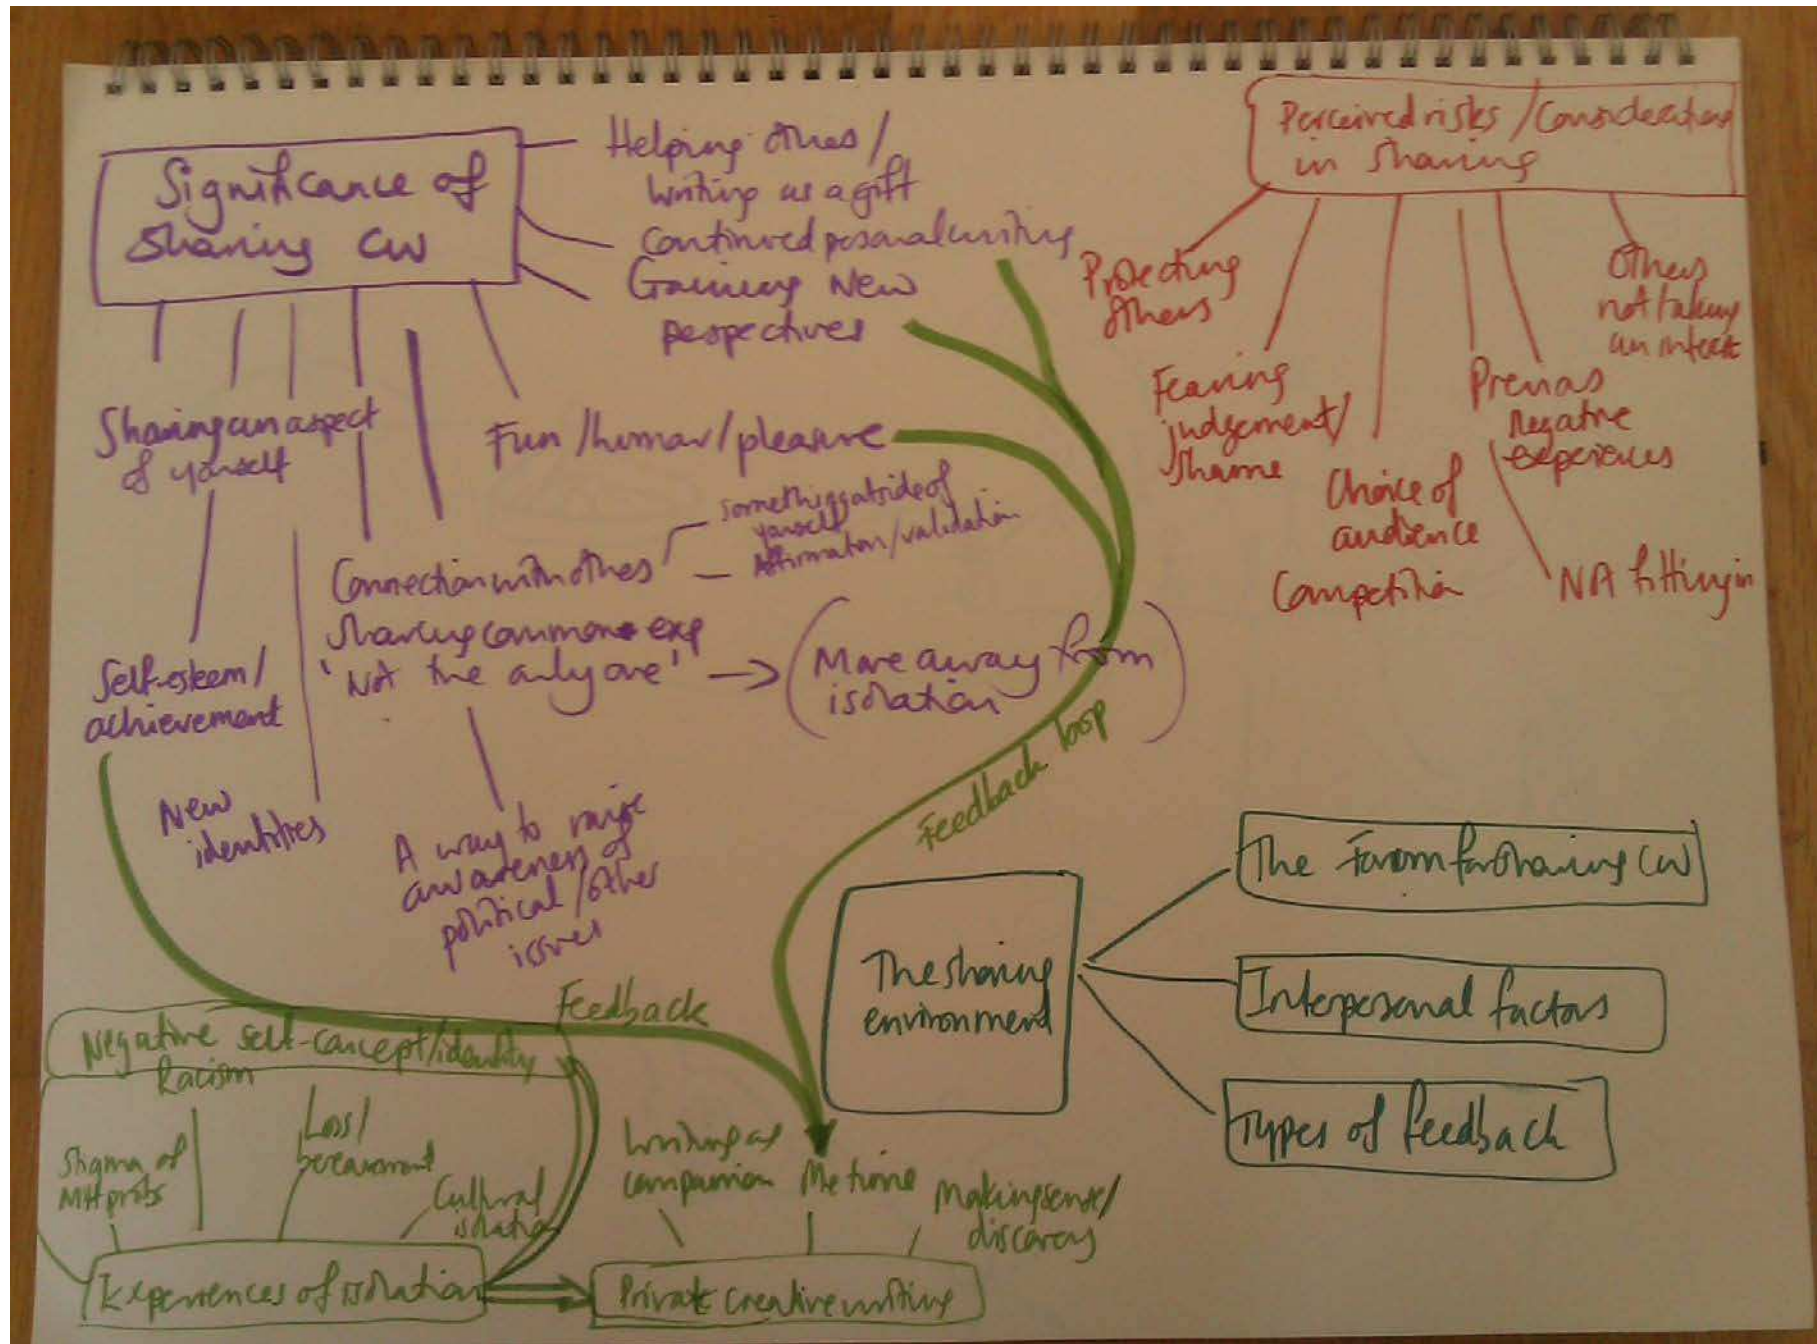 Significance of
Sharing CW
Helping others /
writing as a gift
Continued personal writing
Gaining New
perspectives
Sharing an aspect
of yourself
Fun /humour/pleasure
Something outside of
yourself
Affirmation/validation
Connection with others
Sharing common exp
'Not the only one'
(Move away from
isolation)
Self-esteem/
achievement
New
identities
A way to raise
awareness of
political /other
issues
Perceived risks /Considerations
in sharing
Protecting
others
Fearing
judgement/
shame
Choice of
audience
Competition
Previous
negative
experiences
Not fitting in
Others
not taking
an interest
Feedback loop
Feedback
The sharing
environment
The Forum for sharing CW
Interpersonal factors
Types of feedback
Negative self-concept/identity
Racism
Stigma of
MH probs
Loss/
bereavement
Cultural
isolation
Experiences of isolation
Writing as
companion
Me time
Making sense/
discovery
Private creative writing